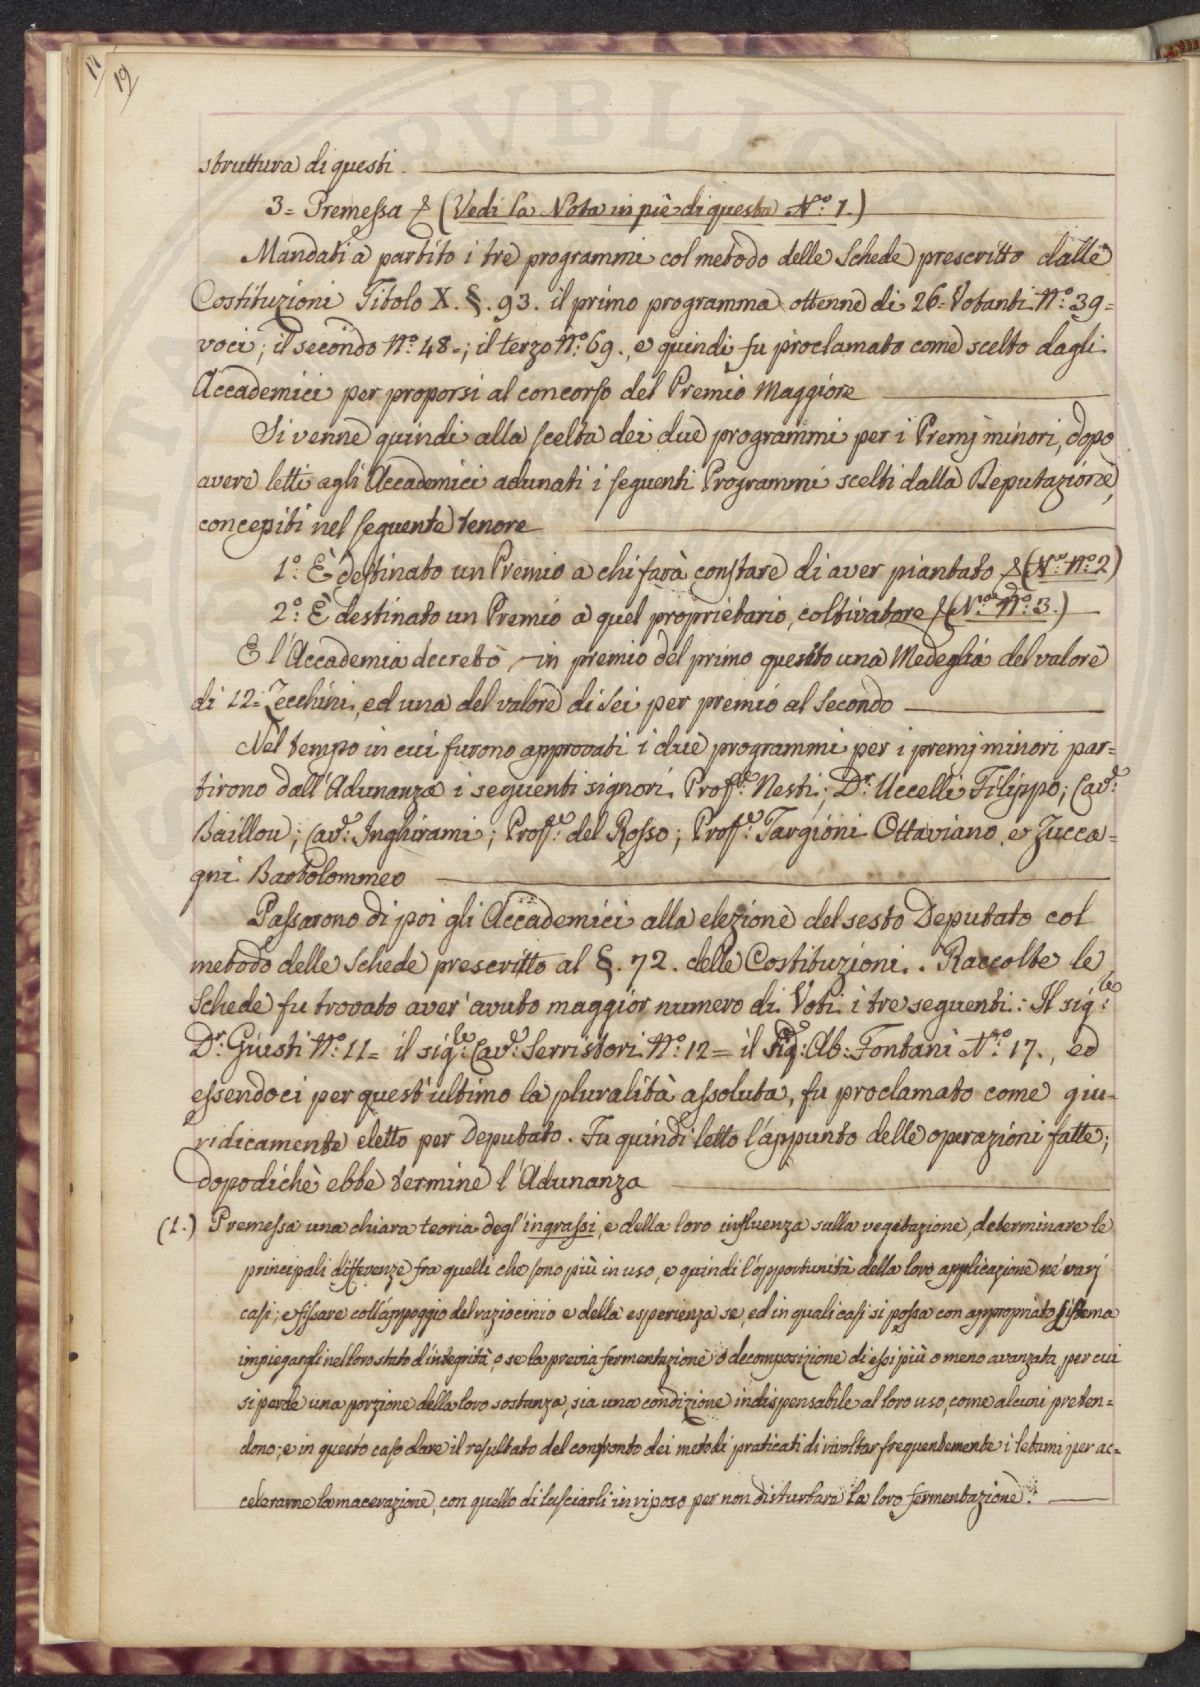 11
19
struttura di questi.
3= Premessa & (Vedi la Nota in piè di questa N.º 1.)
Mandati a partito i tre programmi col metodo delle Schede prescritto dalle
Costituzioni Titolo X. §. 93. il primo programma ottenne di 26= Votanti N.º 39=
voci; il secondo N.º 48=; il terzo N.º 69., e quindi fu proclamato come scelto dagli
Accademici per proporsi al concorso del Premio Maggiore
Si venne quindi alla scelta dei due programmi per i Premj minori, dopo
avere letti agli Accademici adunati i seguenti Programmi scelti dalla Deputazione,
concepiti nel seguente tenore
1.º È destinato un Premio a chi farà constare di aver piantato & (N.ª N.º 2)
2.º È destinato un Premio a quel proprietario, coltivatore & (N.ª N.º 3.)
E l'Accademia decretò in premio del primo quesito una Medeglia del valore
di 12= Zecchini, ed una del valore di Sei per premio al Secondo
Nel tempo in cui furono approvati i due programmi per i premj minori par=
tirono dall'Adunanza i seguenti signori. Proff.e Nesti; D.r Uccelli Filippo; Cav.e
Baillou; Cav.e Inghirami; Proff.e del Rosso; Proff.e Targioni Ottaviano, e Zucca=
gni Bartolommeo
Passarono di poi gli Accademici alla elezione del sesto Deputato col
metodo delle Schede prescritto al §. 72. delle Costituzioni. Raccolte le
Schede fu trovato aver avuto maggior numero di Voti i tre seguenti: Il sig.le
D.r Giusti N.º 11= il sig.le Cav.e Serristori N.º 12= il Sig.e Ab: Fontani N.º 17., ed
essendoci per quest'ultimo la pluralità assoluta, fu proclamato come giu=
ridicamente eletto per Deputato. Fu quindi letto l'appunto delle operazioni fatte;
dopodichè ebbe termine l'Adunanza
(1.) Premessa una chiara teoria degl'ingrassi, e della loro influenza sulla vegetazione, determinare le
principali differenze fra quelli che sono più in uso, e quindi l'opportunità della loro applicazione né varj
casi; e fissare coll'appoggio del raziocinio e della esperienza se, ed in quali casi si possa con appropriato sistema
impiegargli nel loro stato d'integrità, o se la previa fermentazione o decomposizione di essi più o meno avanzata, per cui
si perde una porzione della loro sostanza, sia una condizione indispensabile al loro uso, come alcuni preten=
dono; e in questo caso dare il resultato del confronto dei metodi praticati di rivoltar frequentemente i letami per ac=
celerarne la macerazione, con quello di lasciarli in riposo per non disturbare la loro fermentazione.